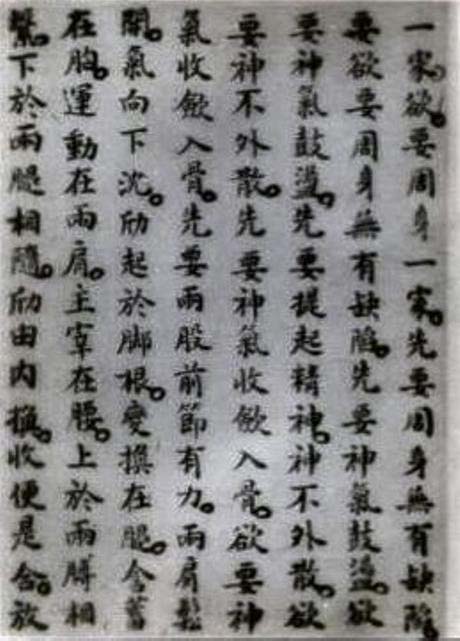 一家。欲要周身一家。先要周身無有缺陷。
要欲要周身無有缺陷。先要神氣鼓盪。欲
要神氣鼓盪。先要提起精神。神不外散。欲
要神不外散。先要神氣收歛入骨。欲要神
氣收歛入骨。先要兩股前節有力。兩肩鬆
開。氣向下沉。劤起於脚根。變換在腿。含蓄
在胸。運動在兩肩。主宰在腰。上於兩膊相
繫。下於兩腿相隨。劤由內換。收便是合。放